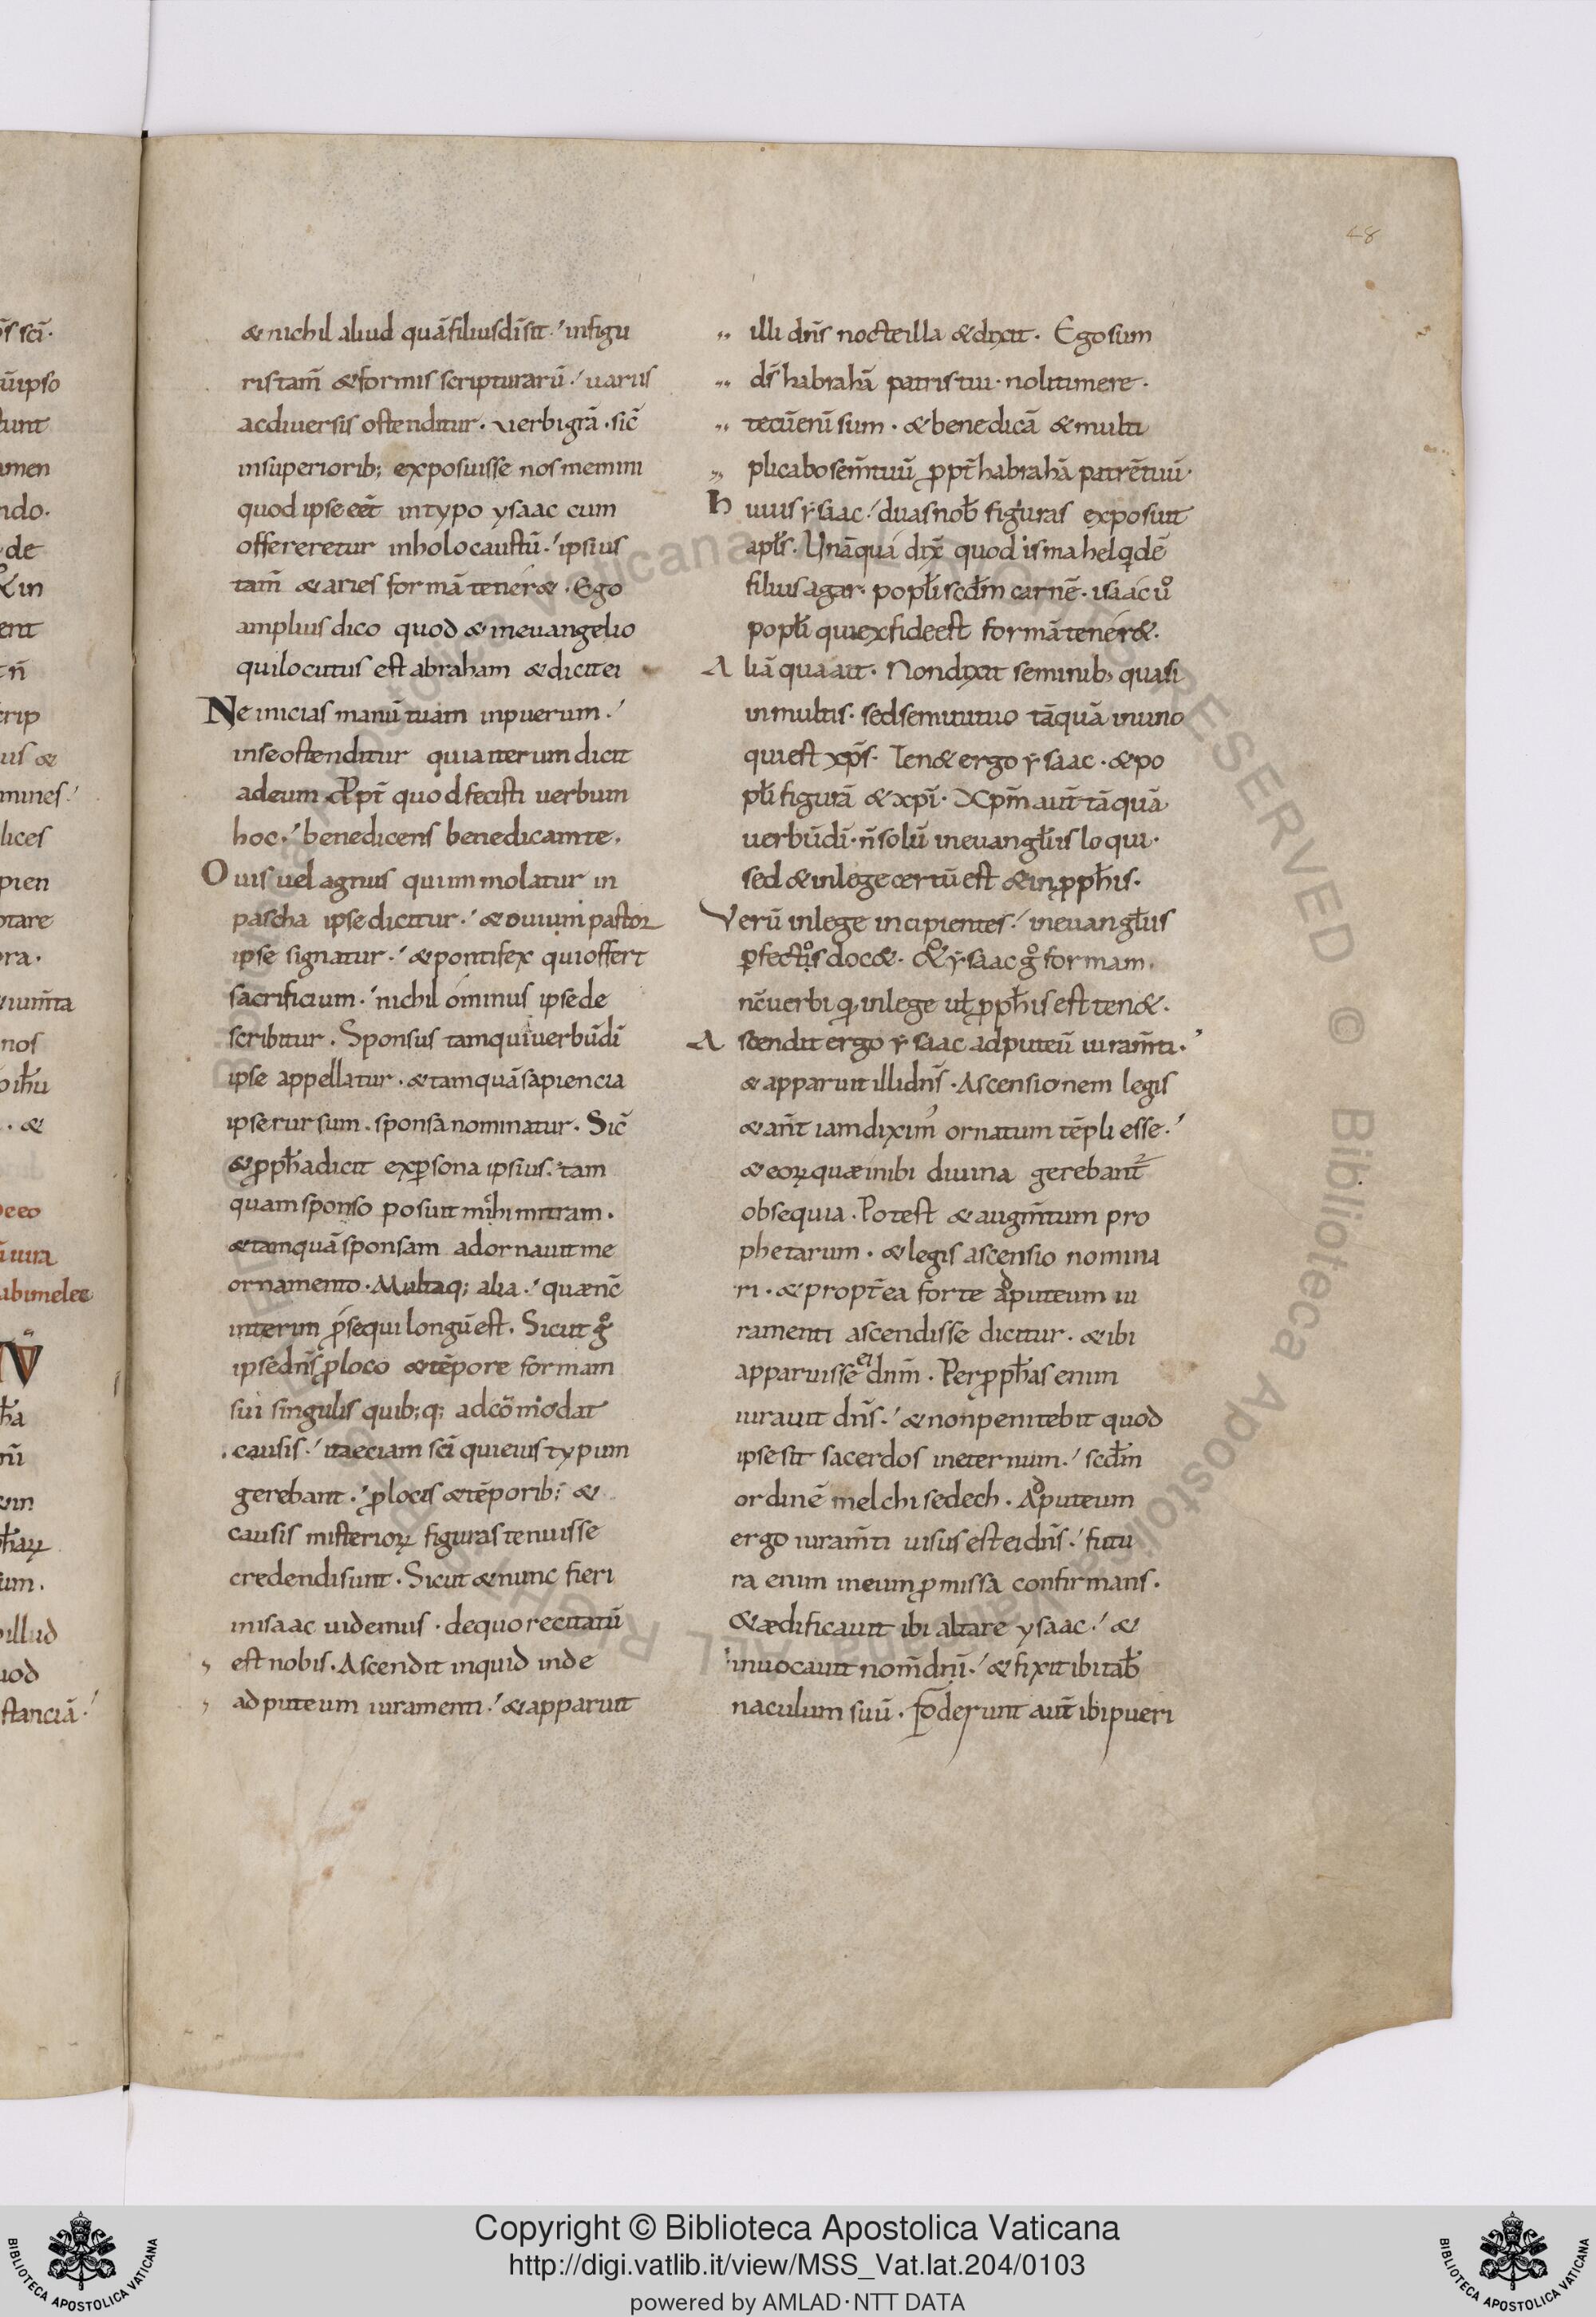 48
s̄ sc̄i.
ūipso
tunt
amen
ndo.
de
& in
erit
t n̄
crip
uis &
mines.
lices
pien
ptare
ora.
nos
. &
deeo
uiura
abimelec
um.
illud
uod
stanciā.
& nichil aliud quā filius dī sit. infigu
ris tam̄ & formis scripturarū. uariis
ac diuersis ostenditur. uerbi grā. sic̄
insuperiorib; exposuisse nos memini
quod ipse eēt in typo ysaac cum
offereretur inholocaustū. ipsius
tam̄ & aries formā tener&. Ego
amplius dico quod & ineuangelio
qui locutus est abraham & dicit ei
Ne inicias manū tuam inpuerum.
inse ostenditur quia iterum dicit
ad eum. Ppt̄ quod fecisti uerbum
hoc. benedicens benedicam te.
Ouis uel agnus qui immolatur in
pascha ipse dicitur. & ouium pastor
ipse signatur. & pontifex qui offert
sacrificium. nichil ominus ipse de
scribitur. Sponsus tamquā uerbū dī
ipse appellatur. & tamquā sapiencia
ipse rursum. sponsa nominatur. Sic̄
& ppħa dicit ex psona ipsius. tam
quam sponso posuit mihi mitram.
& tamquā sponsam adornauit me
ornamento. Multaq; alia. quæ nc̄
interim psequi longū est. Sicut gͦ
ipse dn̄s p loco & tēpore formam
sui singulis quib;q; adcōmodat
causis. ita eciam sc̄i qui eius typum
gerebant. p locis & tēporib; &
causis misterioꝝ figuras tenuisse
credendi sunt. Sicut & nunc fieri
in isaac uidemus. de quo recitatū
est nobis. Ascendit inquid inde
ad puteum iuramenti. & apparuit
illi dn̄s nocte illa & dixit. Ego sum
ds̄ habrahā patris tui. noli timere.
tecū enī sum. & benedicā & multi
plicabo sem̄ tuū ppt̄ habrahā patrē tuū.
Huius ysaac. duas nob̄ figuras exposuit
apl̄s. Unā quā dix̄ quod ismahel qdē
filius agar. popl̄i scd̄m carnē. isaac uͦ
popl̄i qui ex fide est formā tener&.
Aliā qua ait. Non dixit seminib; quasi
in multis. sed semini tuo tāquā in uno
qui est xp̄s. Ten& ergo ysaac. & po
pl̄i figurā & xp̄i. Xp̄m aut̄ tāquā
uerbū dī. n̄ solū ineuangl̄iis loqui.
sed & inlege certū est & in ppħis.
Verū inlege incipientes. ineuangl̄iis
pfectos doc&. & ysaac gͦ formam
nc̄ uerbi q̄ inlege uł ppħis est ten&.
Ascendit ergo ysaac ad puteū iuram̄ti.
& apparuit illi dn̄s. Ascensionem legis
& an̄t iam dixim' ornatum tēpli esse.
& eoꝝ quæ inibi diuina gerebant̄
obsequia. Potest & augm̄tum pro
phetarum. & legis ascensio nomina
ri. & propt̄ea forte ad puteum iu
ramenti ascendisse dicitur. & ibi
apparuisse ei dn̄m. Per ppħas enim
iurauit dn̄s. & non penitebit quod
ipse sit sacerdos ineternum. scd̄m
ordinē melchisedech. Ad puteum
ergo iuram̄ti uisus est ei dn̄s. futu
ra enim ineum pmissa confirmans.
& ædificauit ibi altare ysaac. &
inuocauit nom̄ dn̄i. & fixit ibi tab̄
naculum suū. foderunt aut̄ ibi pueri
Copyright © Biblioteca Apostolica Vaticana
http://digi.vatlib.it/view/MSS_Vat.lat.204/0103
powered by AMLAD·NTT DATA
BIBLIOTECA APOSTOLICA VATICANA
BIBLIOTECA APOSTOLICA VATICANA